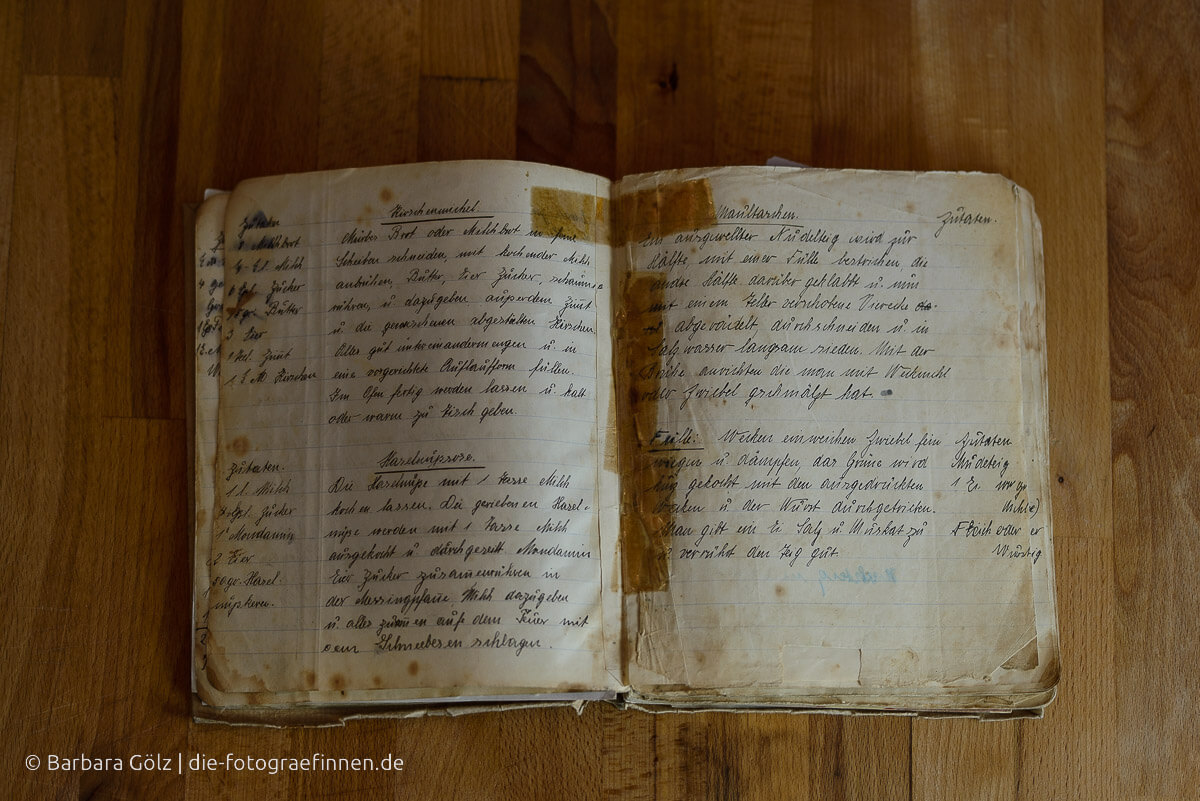 Kirschenmichel.
Zutaten
Mürbes Brot oder Milchbrot in feine
Milchbrot
Scheiben schneiden, mit kochender Milch
Milch
anbrühen, Butter, Eier Zucker, schaumig
Zucker
rühren, u. dazugeben außerdem Zimt
Butter
u. die gewaschenen abgestielten Kirschen.
3 Eier
Alles gut untereinandermengen u. in
Zimt
eine vorgerichtete Auflaufform füllen.
Kirschen
Im Ofen fertig werden lassen u. kalt
oder warm zu Tisch geben.
Haselnußsose.
Zutaten.
Die Haselnüße mit 1 Tasse Milch
1 l. Milch
kochen lassen. Die geriebenen Hasel-
Zucker
nüße werden mit 1 Tasse Milch
1 Mondamin
ausgekocht u. durchgeseiht. Mondamin
2 Eier
Eier Zucker zusammenrühren in
50 gr. Hasel-
der Messingpfanne Milch dazugeben
nußkerne.
u. alles zusammen aufs dem Feuer mit
dem Schneebesen schlagen.
Maultaschen.
Zutaten.
Ein ausgewellter Nudelteig wird zur
Hälfte, mit einer Fülle bestrichen, die
andre Hälfte darüber geklabbt u. nun
mit einem Teller verschobene Vierecke
abgerädelt, durchschneiden u. in
Salzwasser langsam sieden. Mit der
Brühe anrichten die man mit Weckmehl
oder Zwiebel geschmälzt hat.
Fülle: Wecken einweichen Zwiebel fein
Zutaten
wiegen u. dämpfen, das Grüne wird
Nudelteig
gekocht mit den ausgedrückten
1 Ei
Wecken u. der Wurst durchgetrieben.
Man gibt ein Ei Salz u. Muskat zu
Fleisch oder
u. verrührt den Teig gut.
© Barbara Gölz | die-fotograefinnen.de